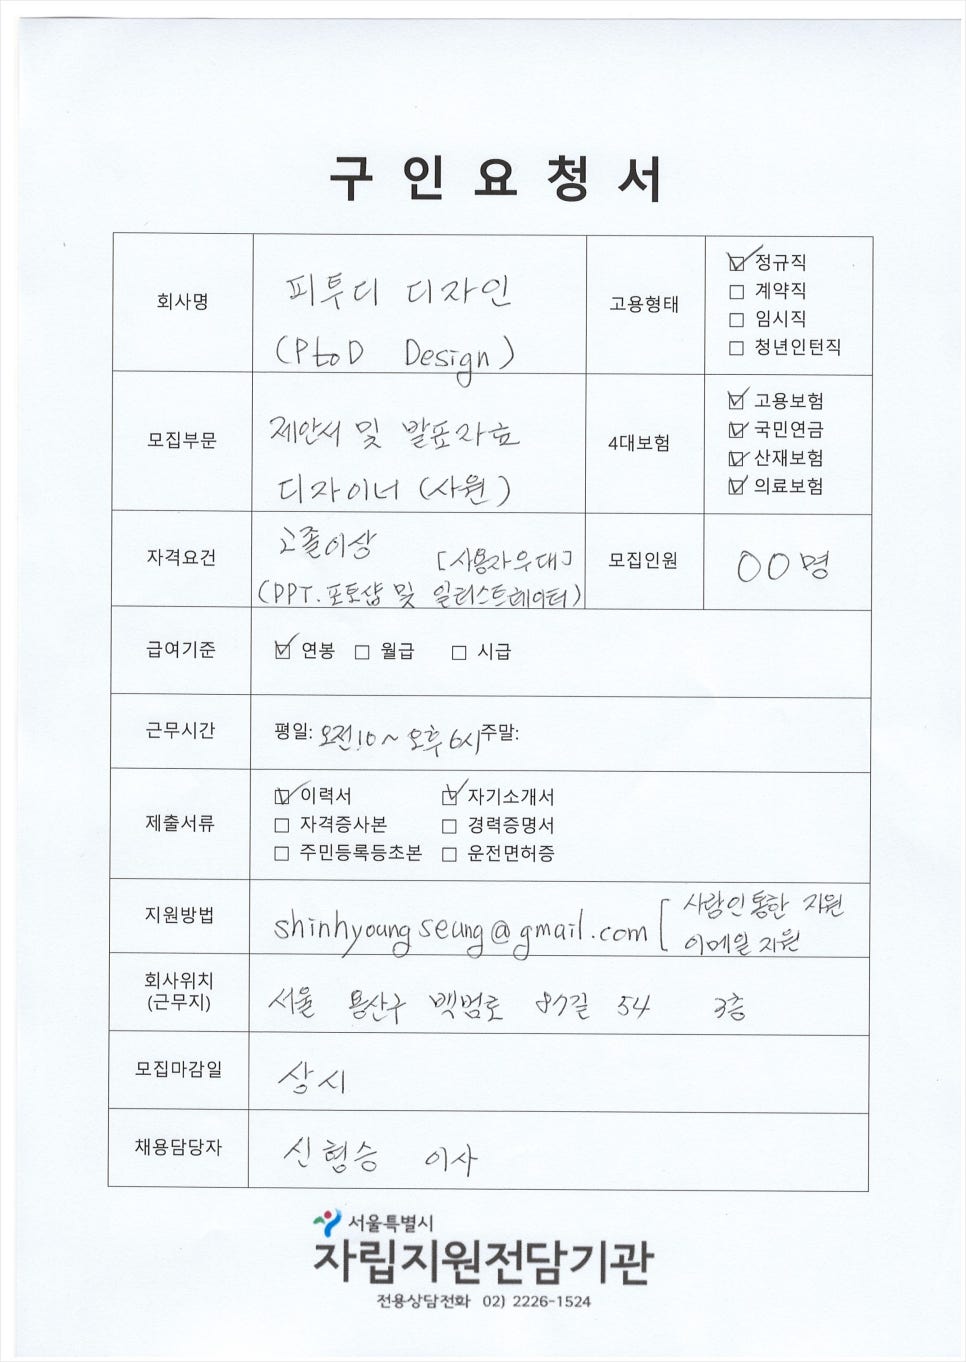 구인요청서
회사명
피투디 디자인
(PtoD Design)
고용형태
☑ 정규직
☐ 계약직
☐ 임시직
☐ 청년인턴직
모집부문
제안서 및 발표자료
디자이너 (사원)
4대보험
☑ 고용보험
☑ 국민연금
☑ 산재보험
☑ 의료보험
자격요건
고졸이상
[사용자우대]
(PPT.포토샵 및 일러스트레이터)
모집인원
00명
급여기준
☑ 연봉 ☐ 월급 ☐ 시급
근무시간
평일: 오전10~오후6시 주말:
제출서류
☑ 이력서 ☑ 자기소개서
☐ 자격증사본 ☐ 경력증명서
☐ 주민등록등초본 ☐ 운전면허증
지원방법
shinhyoungseung@gmail.com
[사람인통한 지원
이메일지원
회사위치
(근무지)
서울 용산구 백범로 87길 54 3층
모집마감일
상시
채용담당자
신형승 이사
서울특별시
자립지원전담기관
전용상담전화 02) 2226-1524